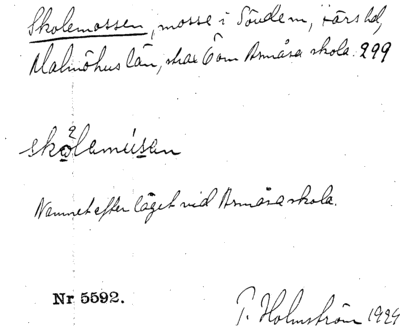 Skolemossen, mosse i Söndem, Färs hd,
Malmöhus län, strax Ö om Asmåsa skola. 299
skolemúsen
Namnet efter läget vid Asmåsa skola.
Nr 5592.
T. Holmström 1924